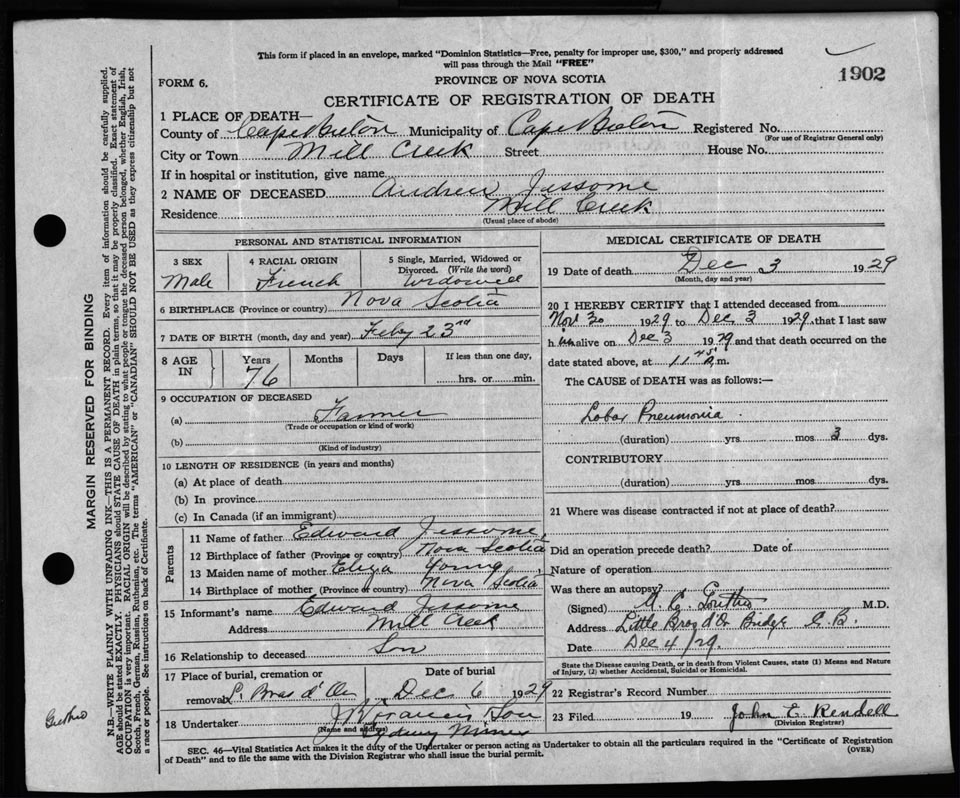 This form if placed in an envelope, marked "Dominion Statistics—Free, penalty for improper use, $300," and properly addressed
will pass through the Mail "FREE"
1902
FORM 6.
PROVINCE OF NOVA SCOTIA
CERTIFICATE OF REGISTRATION OF DEATH
1 PLACE OF DEATH—
County of Cape Breton Municipality of Cape Breton Registered No.
(For use of Registrar General only)
City or Town Mill Creek Street House No.
If in hospital or institution, give name
2 NAME OF DECEASED Andrew Jessome
Residence Mill Creek
(Usual place of abode)
PERSONAL AND STATISTICAL INFORMATION
3 SEX 4 RACIAL ORIGIN 5 Single, Married, Widowed or
Divorced. (Write the word)
Male French Widowed
6 BIRTHPLACE (Province or country) Nova Scotia
7 DATE OF BIRTH (month, day and year) Feby 23rd
8 AGE IN Years Months Days If less than one day,
76 hrs. or min.
9 OCCUPATION OF DECEASED
(a) Farmer
(Trade or occupation or kind of work)
(b)
(Kind of industry)
10 LENGTH OF RESIDENCE (in years and months)
(a) At place of death
(b) In province
(c) In Canada (if an immigrant)
Parents
11 Name of father Edward Jessome
12 Birthplace of father (Province or country) Nova Scotia
13 Maiden name of mother Eliza Young
14 Birthplace of mother (Province or country) Nova Scotia
15 Informant's name Edward Jessome
Address Mill Creek
16 Relationship to deceased Son
17 Place of burial, cremation or Date of burial
removal L. Bras d'Or Dec 6 1929
18 Undertaker J Francis Son
(Name and address) Sydney Mines
MEDICAL CERTIFICATE OF DEATH
19 Date of death Dec 3 1929
(Month, day and year)
20 I HEREBY CERTIFY that I attended deceased from
Nov 30 1929 to Dec. 3 1929, that I last saw
h im alive on Dec 3 1929 and that death occurred on the
date stated above, at 11.45 m.
The CAUSE of DEATH was as follows:—
Lobar Pneumonia
(duration) yrs. mos 3 dys.
CONTRIBUTORY
(duration) yrs. mos. dys.
21 Where was disease contracted if not at place of death?
Did an operation precede death? Date of
Nature of operation
Was there an autopsy?
(Signed) M.D.
Address Little Bras d'Or Bridge C.B.
Date Dec 4/29.
State the Disease causing Death, or in death from Violent Causes, state (1) Means and Nature
of Injury, (2) whether Accidental, Suicidal or Homicidal.
22 Registrar's Record Number
23 Filed 19 John E Rendell
(Division Registrar)
SEC. 46—Vital Statistics Act makes it the duty of the Undertaker or person acting as Undertaker to obtain all the particulars required in the "Certificate of Registration
of Death" and to file the same with the Division Registrar who shall issue the burial permit.
(OVER)
MARGIN RESERVED FOR BINDING
N.B.—WRITE PLAINLY WITH UNFADING INK—THIS IS A PERMANENT RECORD. Every item of information should be carefully supplied.
AGE should be stated EXACTLY. PHYSICIANS should STATE CAUSE OF DEATH in plain terms, so that it may be properly classified. Exact statement of
OCCUPATION is very important. RACIAL ORIGIN will be described by stating to what people or tongue the deceased person belonged, whether English, Irish,
Scotch, French, German, Russian, Ruthenian, etc. The terms "AMERICAN" or "CANADIAN" SHOULD NOT BE USED as they express citizenship but not
a race or people. See instructions on back of Certificate.